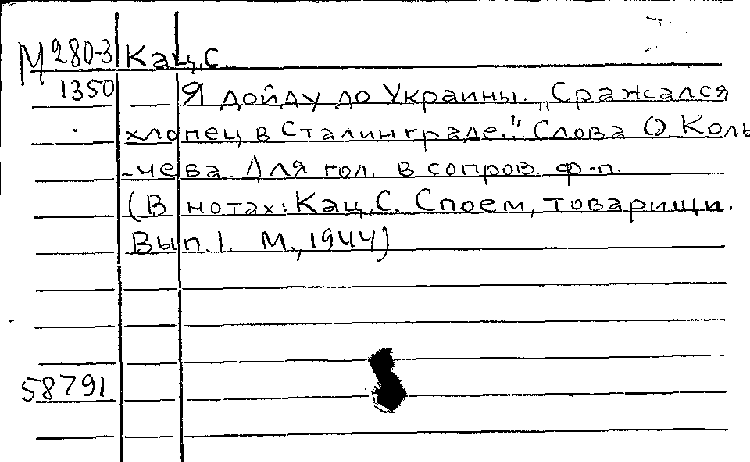 М 280-3 Кац, С.
1350 Я дойду до Украины. „Сражался
хлопец в Сталинграде." Слова О Коль
-чева. Для гол. в сопров. ф-п.
(В нотах: Кац, С. Споем, товарищи.
Вып. 1. М., 1944)
58791